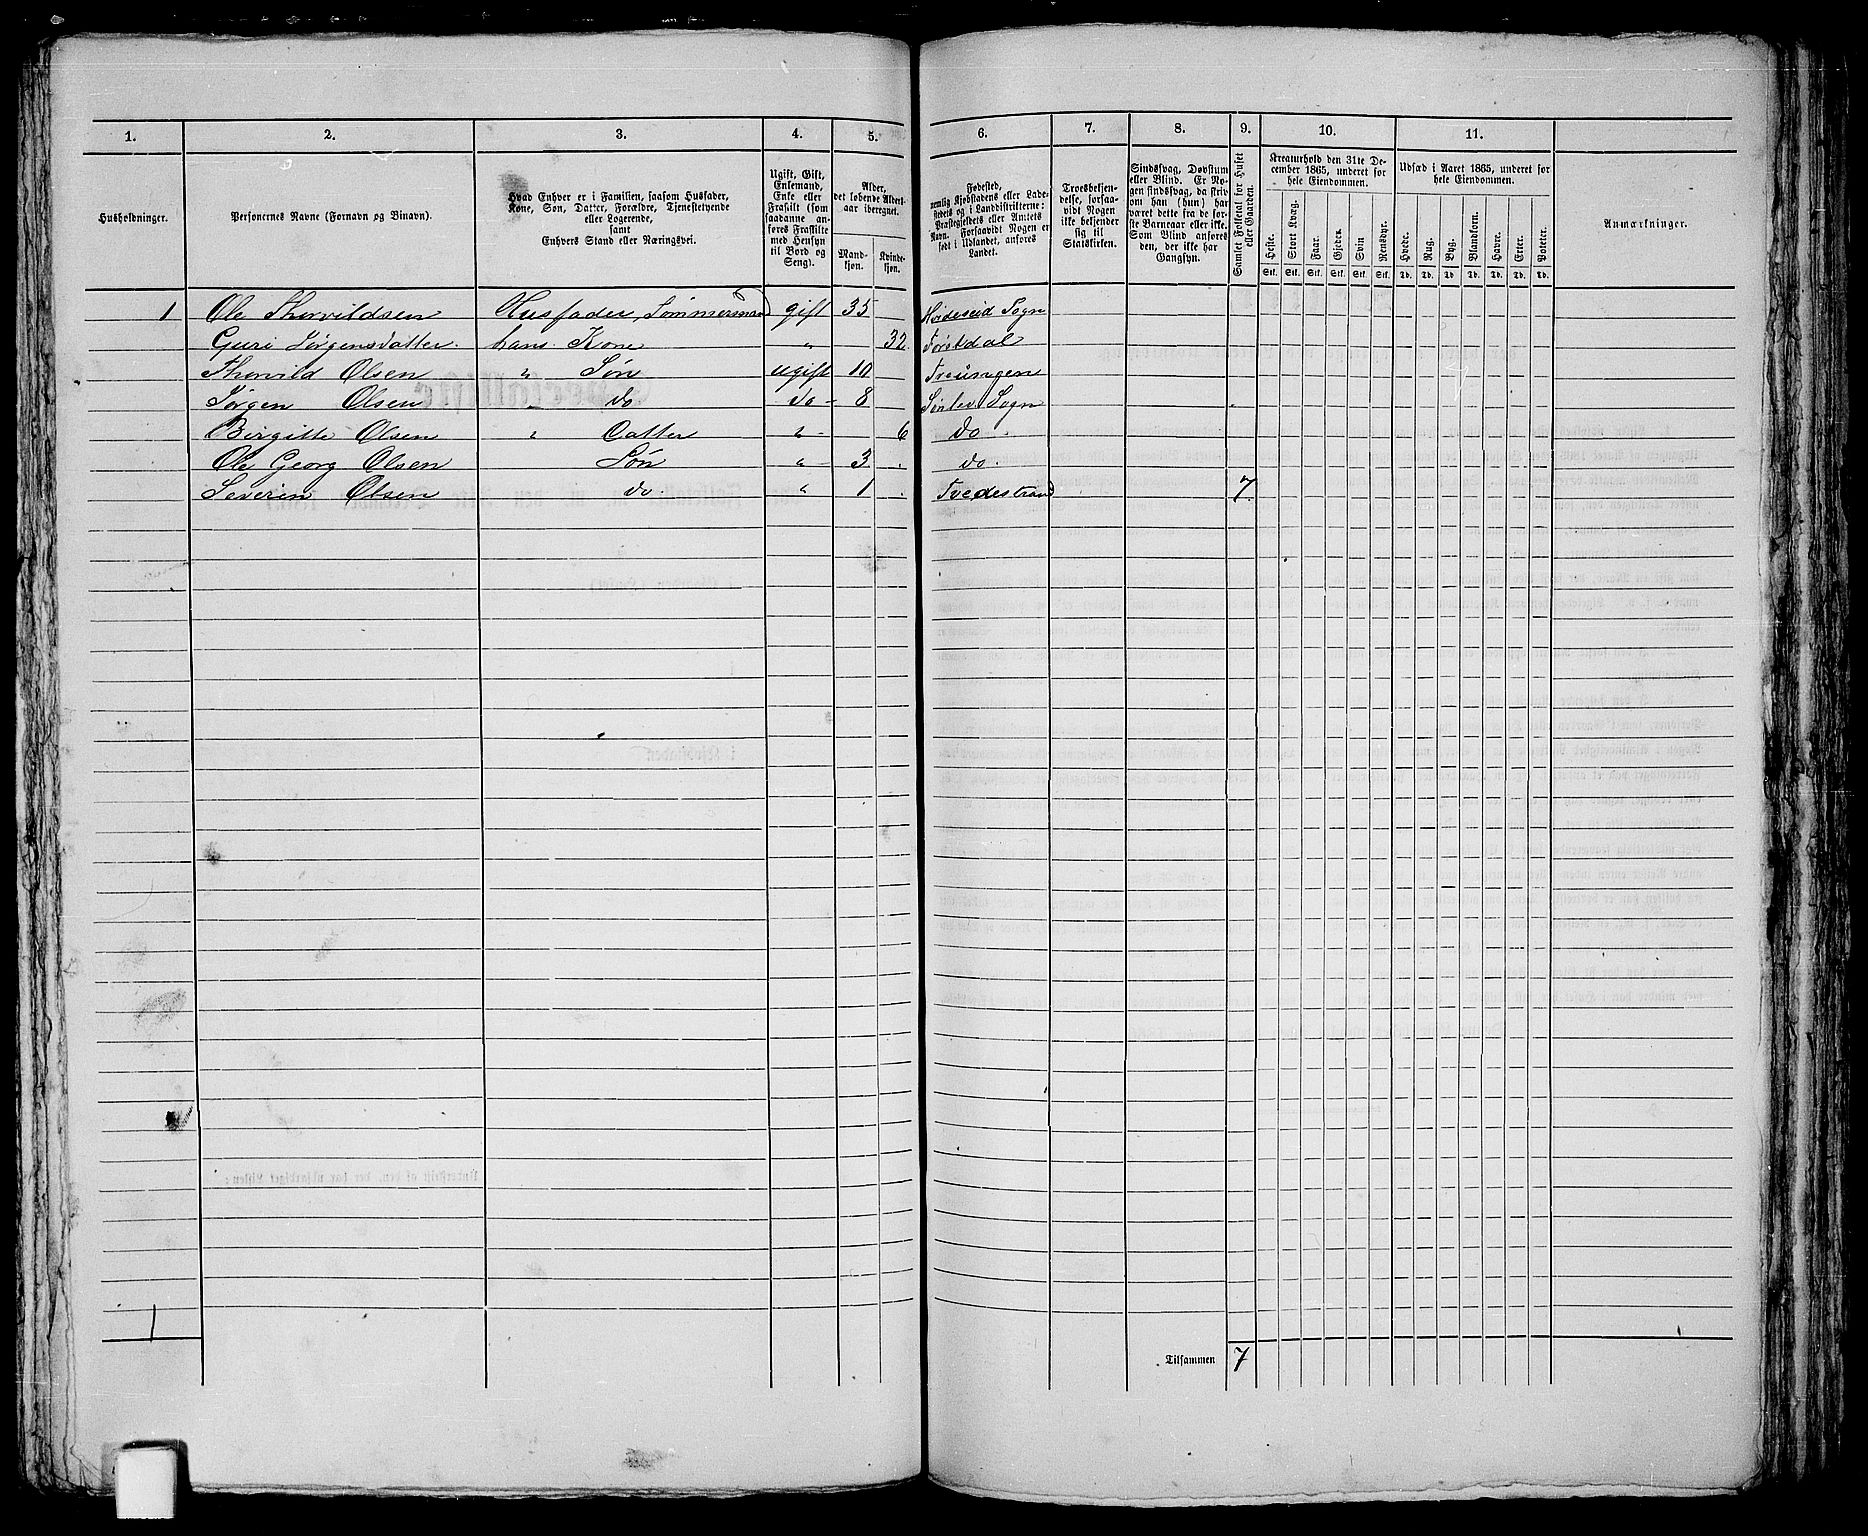 1. 2. 3. 4. 5. 6. 7. 8. 9. 10. 11.
Husholdninger.
Personernes Navne (Fornavn og Binavn).
Hvad Enhver er i Familien, saasom Husfader,
Kone, Søn, Datter, Forældre, Tjenestetyende
eller Logerende,
samt
Enhvers Stand eller Næringsvei.
Ugift, Gift,
Enkemand,
Enke eller
Fraskilt (som
saadanne an-
føres Fraskilte
med Hensyn
til Bord og
Seng).
Alder,
det løbende Alders-
aar iberegnet.
Mand-
kjøn.
Kvinde-
kjøn.
Fødested,
nemlig Kjøbstadens eller Lade-
stedets og i Landdistrikterne:
Præstegjeldets eller Amtets
Navn. Forsaavidt Nogen er
født i Udlandet, anføres
Landet.
Troesbekjen-
delse, forsaa-
vidt Nogen
ikke bekjender
sig til
Statskirken.
Sindssvag, Døvstum
eller Blind. Er No-
gen sindssvag, da skriv
om han (hun) har
været dette fra de for-
ste Barneaar eller ikke.
Som Blind anføres
den, der ikke har
Gangsyn.
Samlet Folketal for Huset
eller Gaarden.
Kreaturhold den 31te De-
cember 1865, underet for
hele Eiendommen.
Heste. Stort Kvæg. Faar. Gjeder. Svin Rensdyr.
Stk. Stk. Stk. Stk. Stk. Stk.
Udsæd i Aaret 1865, underet for
hele Eiendommen.
Hvede. Rug. Byg. Blandkorn. Havre. Erter. Poteter.
Td. Td. Td Td. Td. Td. Td.
Anmærkninger.
1 Ole Thorvildsen Husfader, Tømmermand gift 35 Hvideseid Sogn
Guri Jørgensdatter. hans Kone " 32. Førstdal
Thorvild Olsen " Søn ugift 10 Treungen
Jørgen Olsen " do do - 8 Sønlev Sogn
Birgitte Olsen " Datter " - 6 do .
Ole Georg Olsen Søn " - 3 . do.
Severin Olsen do. " 1 . Tvedestrand 7
1
Tilsammen 7